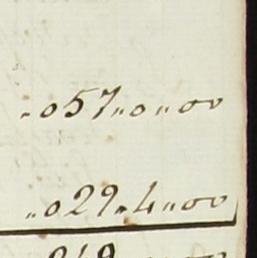 "057"0"00
"029"4"00